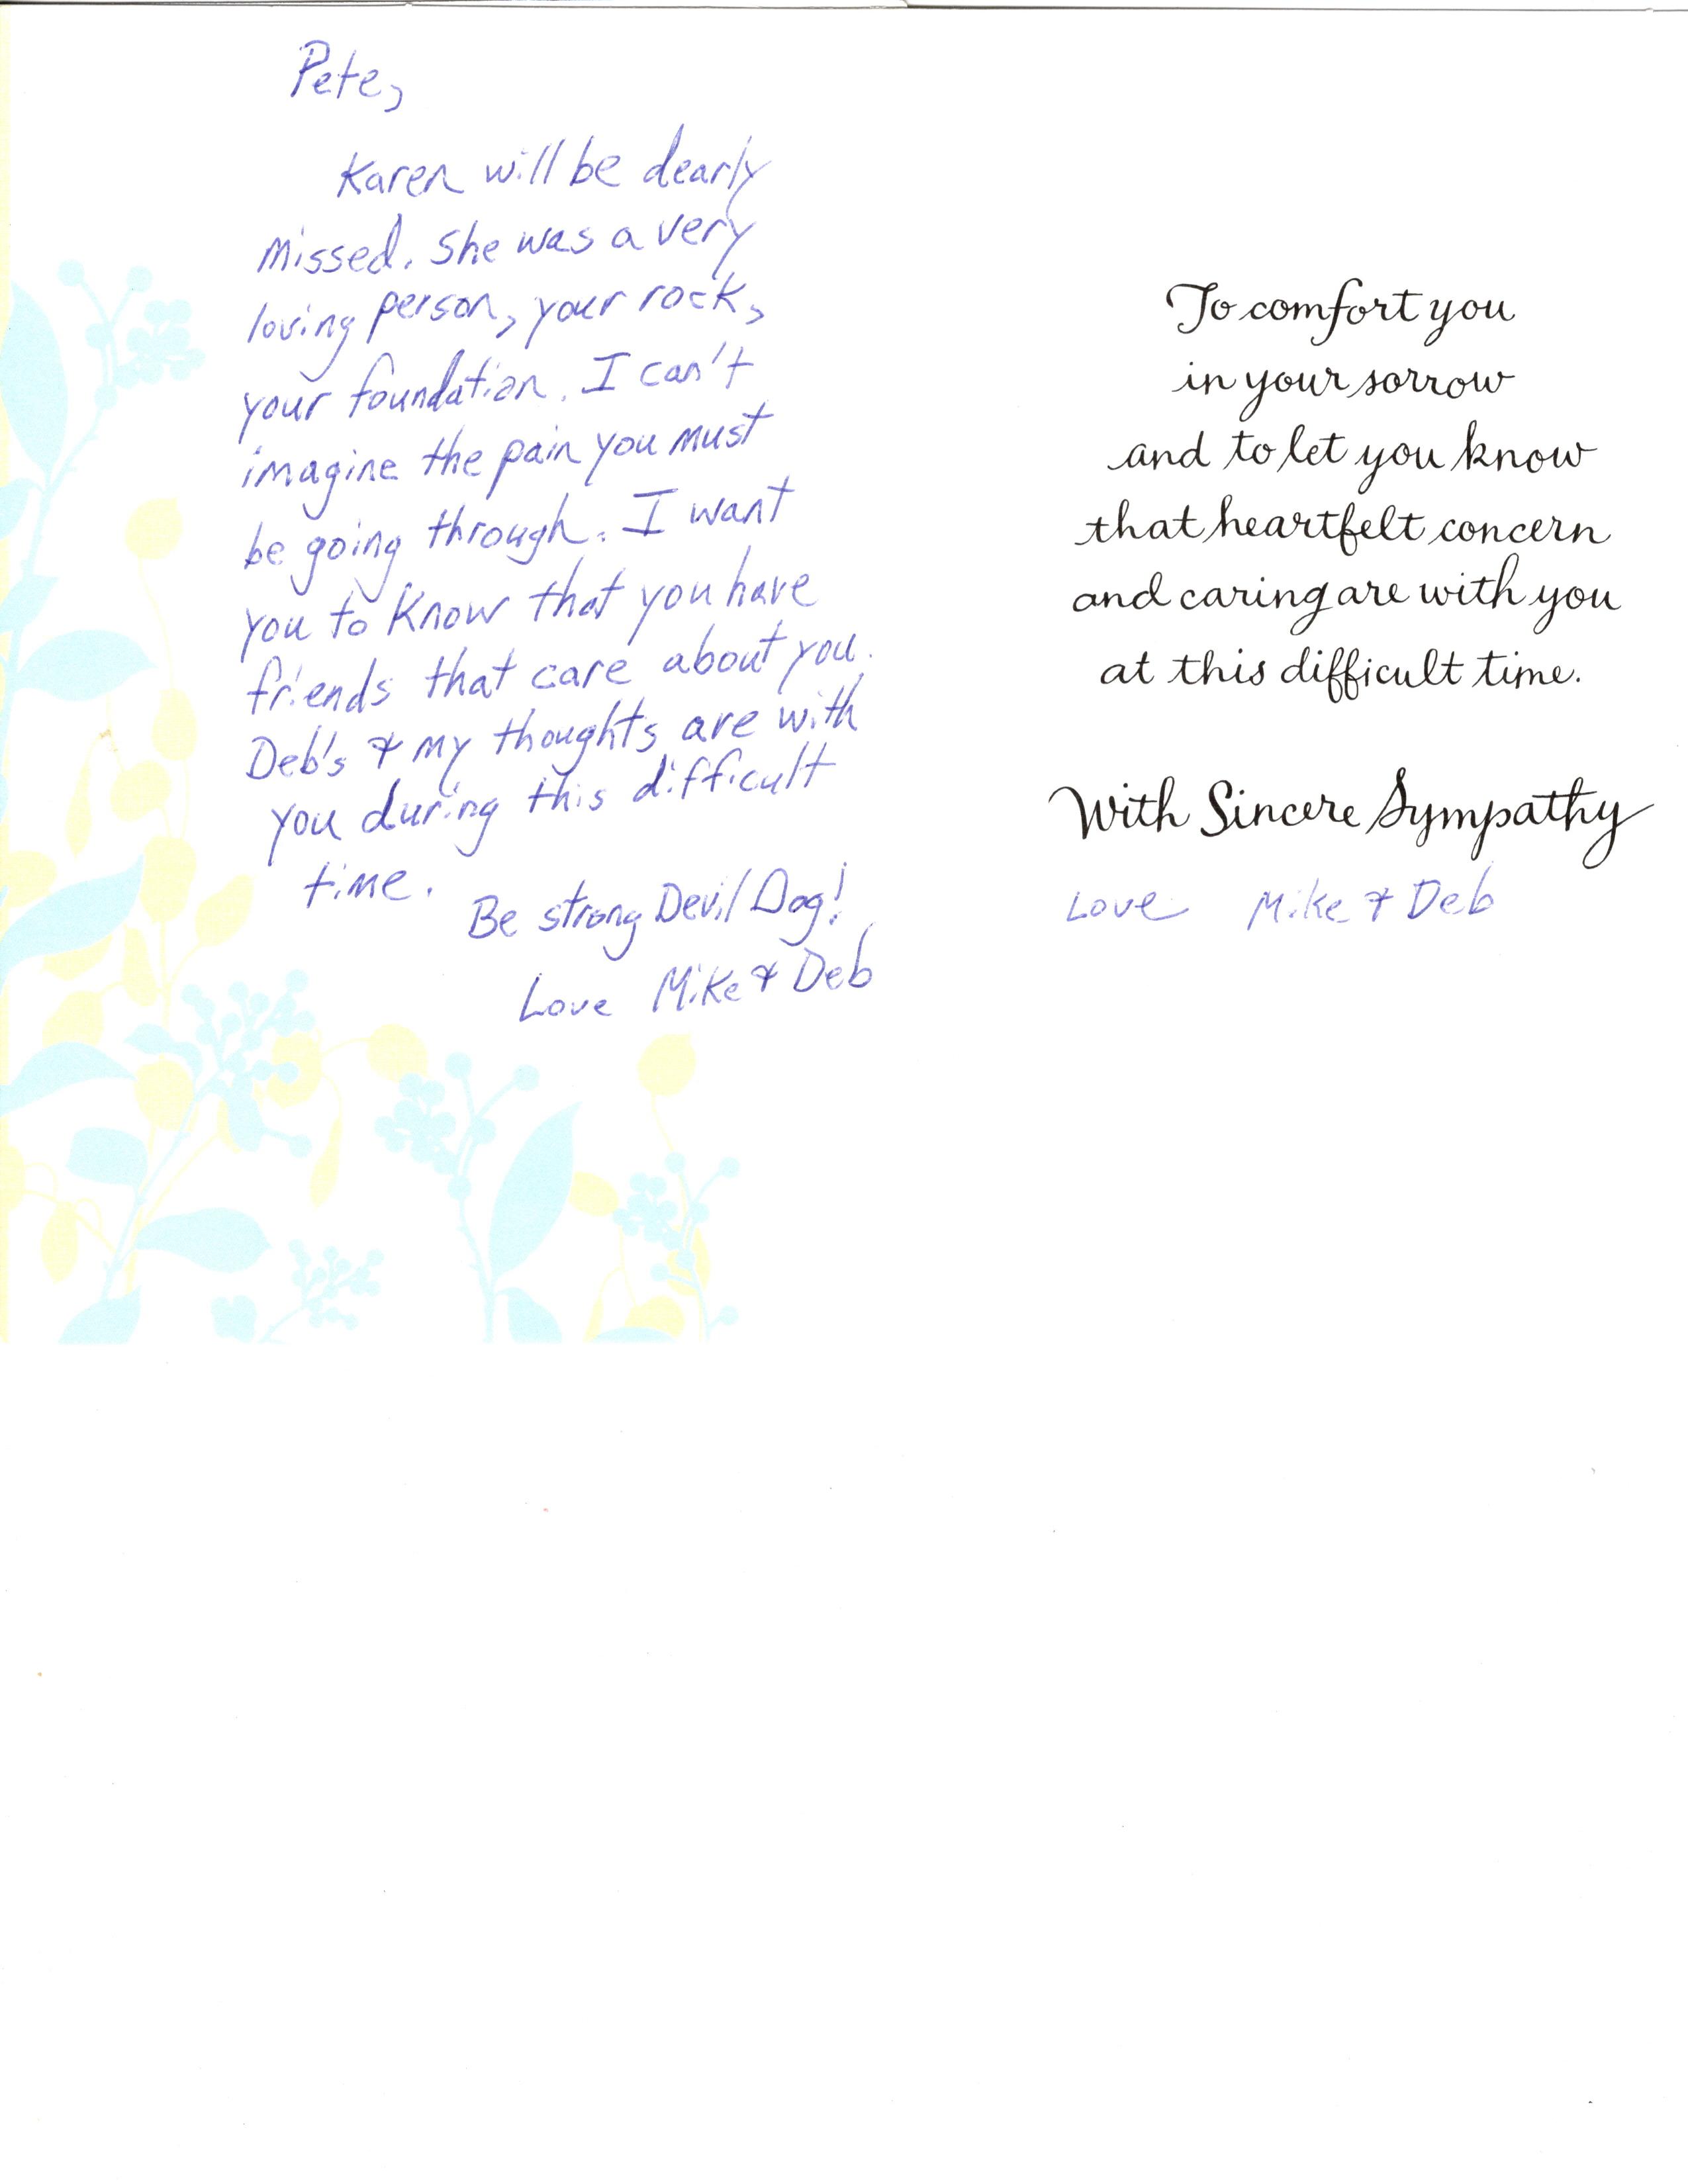 Pete,
Karen will be dearly
missed. She was a very
loving person, your rock,
your foundation. I can't
imagine the pain you must
be going through. I want
you to know that you have
friends that care about you.
Deb's & my thoughts are with
you during this difficult
time.
Be strong Devil Dog!
Love Mike & Deb
To comfort you
in your sorrow
and to let you know
that heartfelt concern
and caring are with you
at this difficult time.
With Sincere Sympathy
Love Mike & Deb